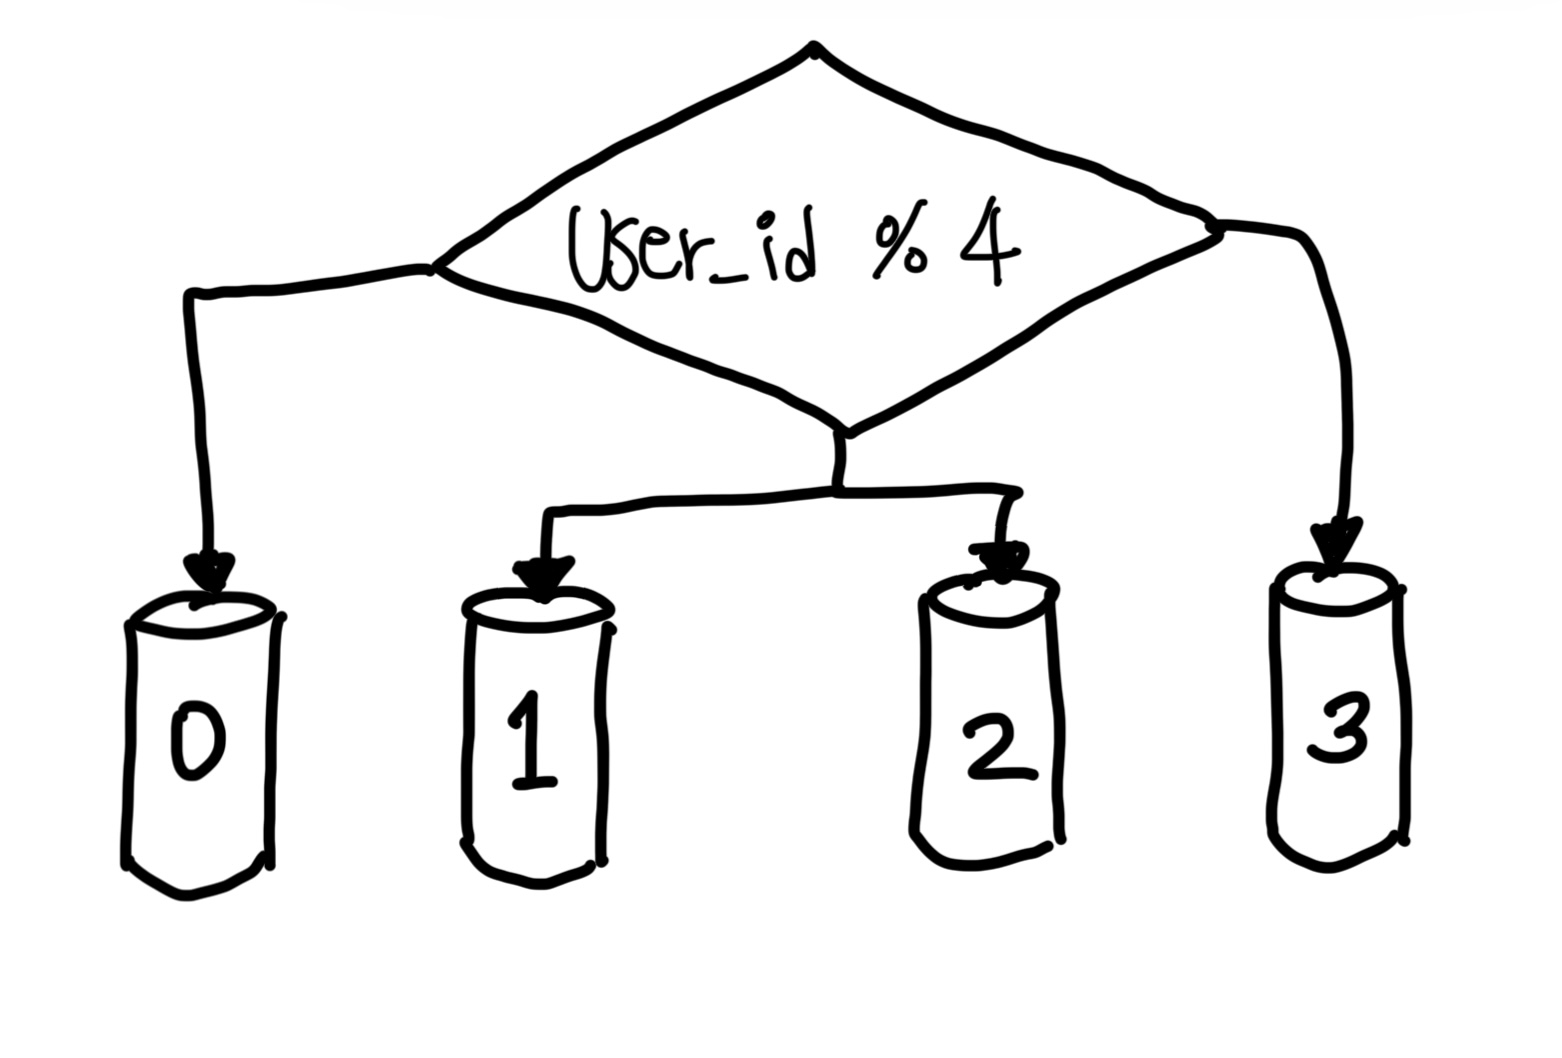 User_id % 4
0
1
2
3